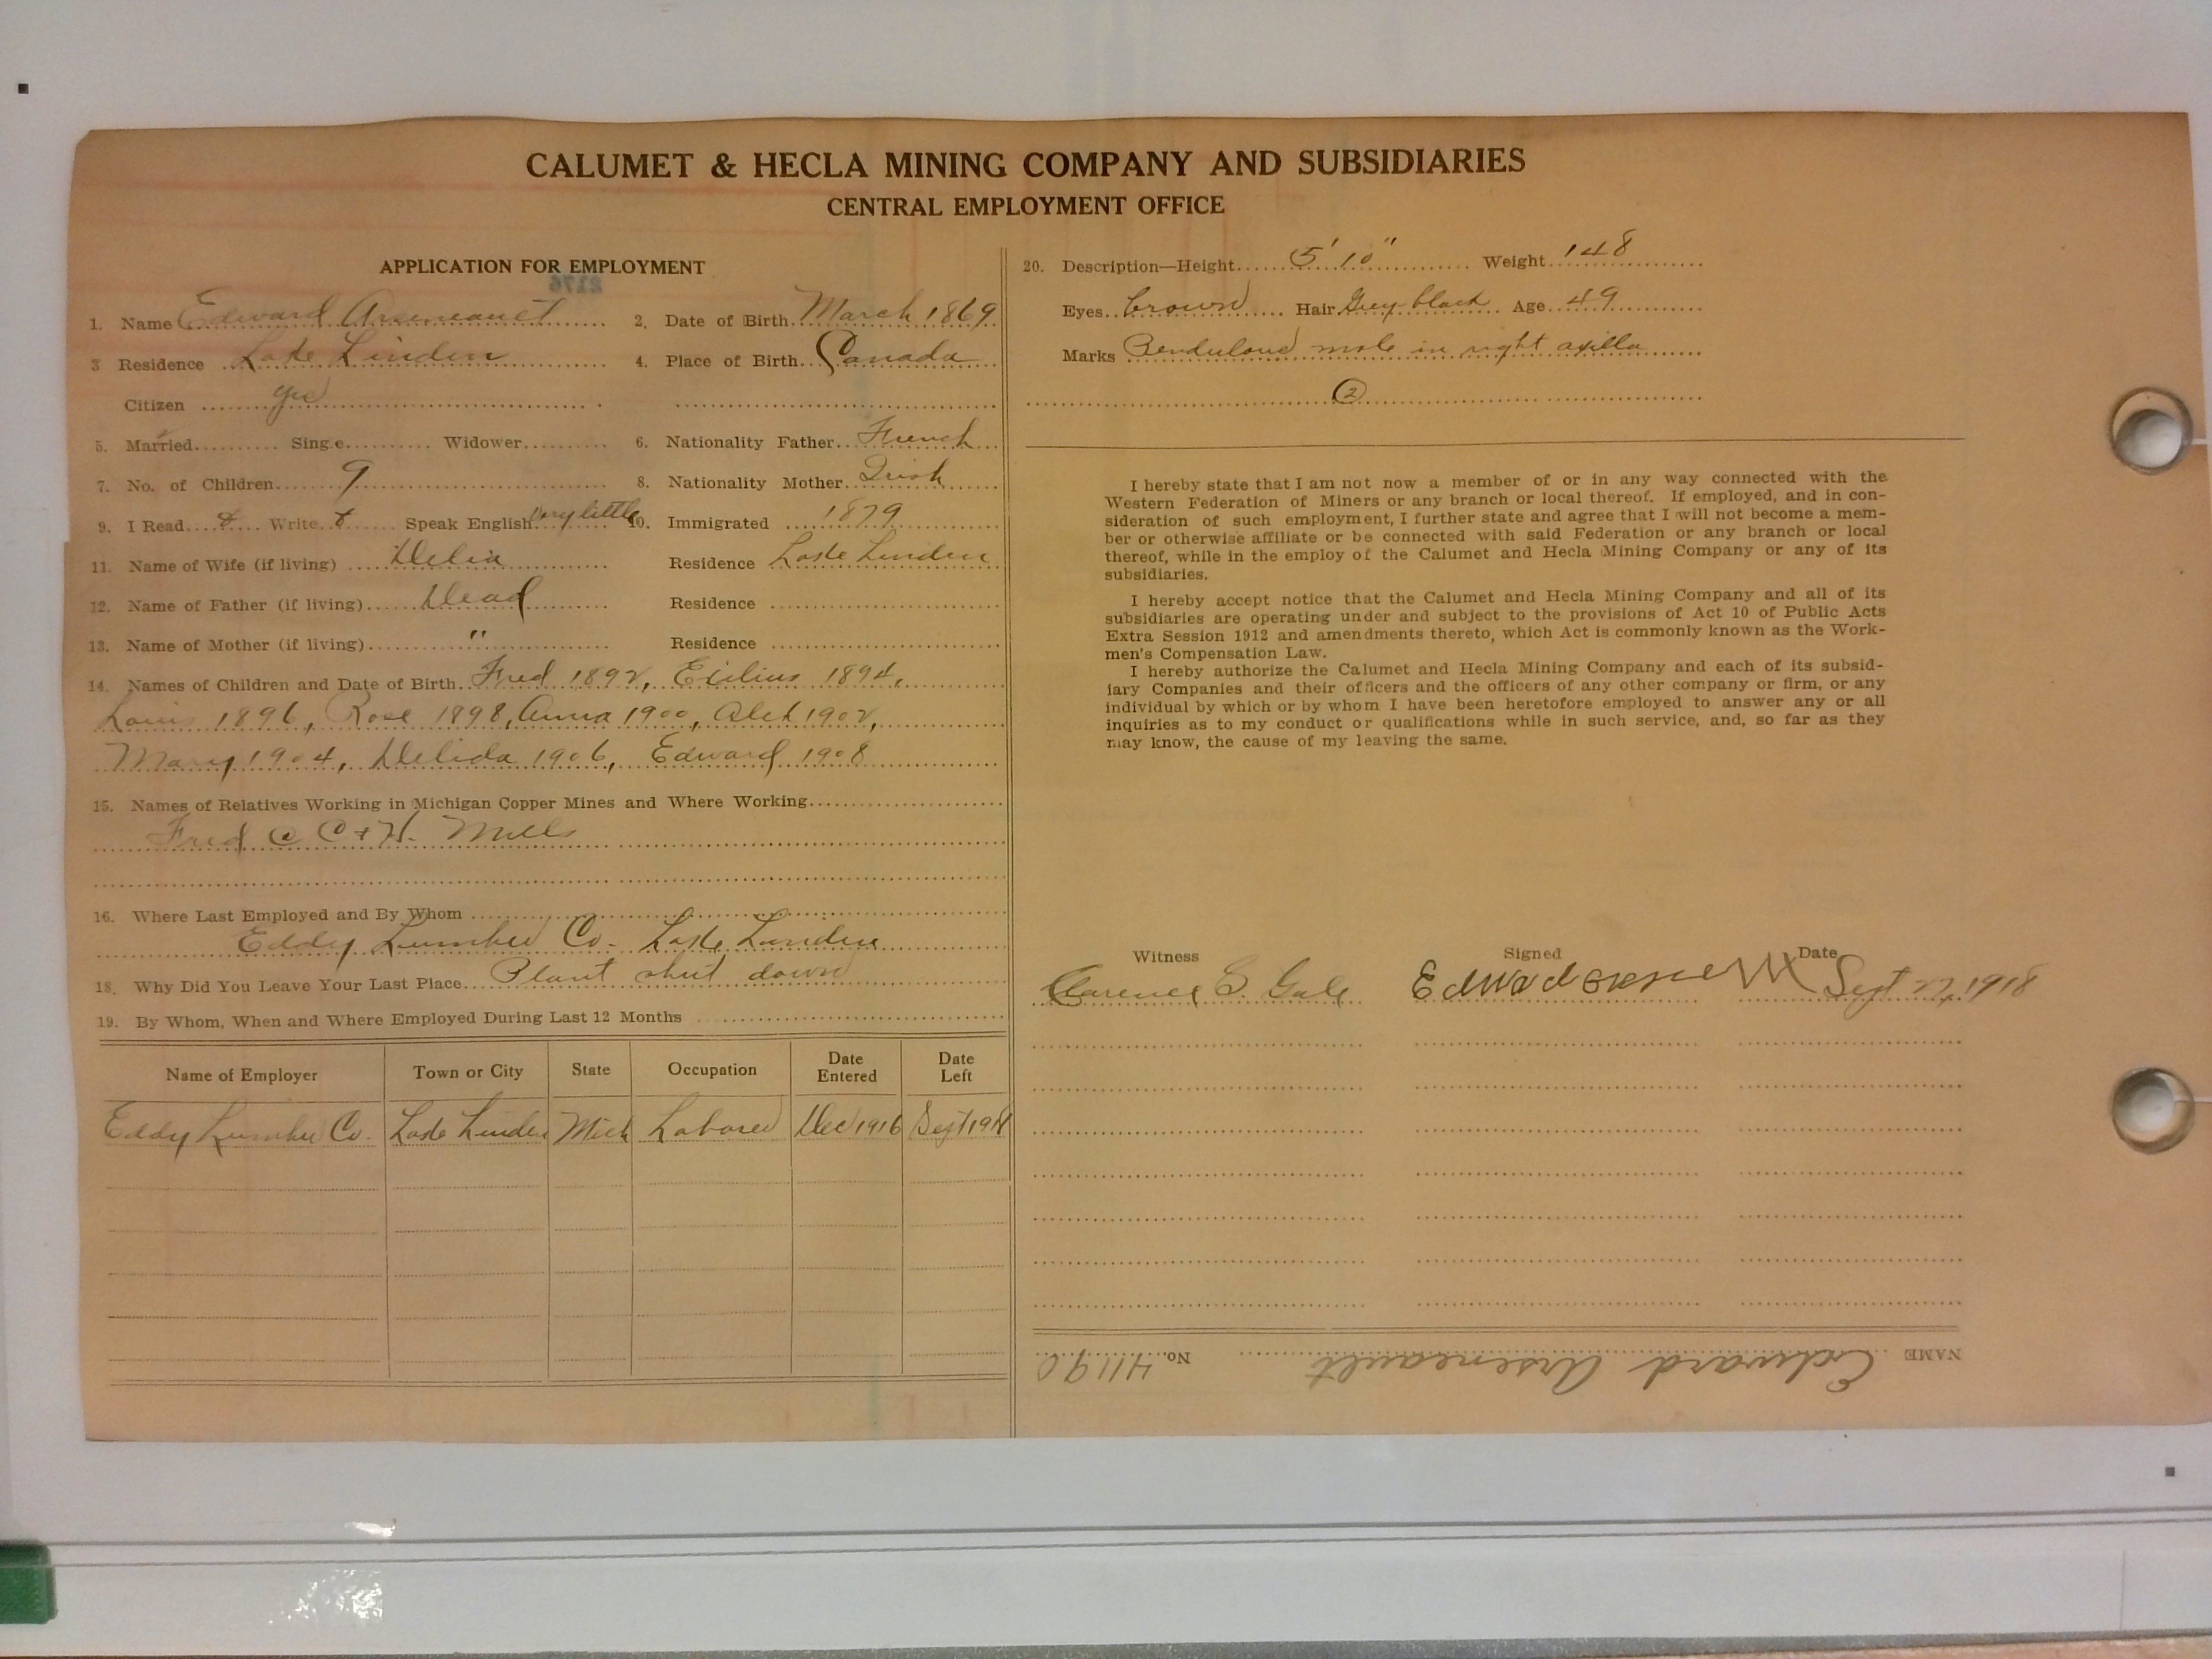 CALUMET & HECLA MINING COMPANY AND SUBSIDIARIES
CENTRAL EMPLOYMENT OFFICE
APPLICATION FOR EMPLOYMENT
2176
1. Name Edward Arseneault 2. Date of Birth March 1869
3 Residence Lake Linden 4. Place of Birth Canada
Citizen yes
5. Married Sing.e Widower 6. Nationality Father French
7. No. of Children 9 8. Nationality Mother Irish
9. I Read Write Speak English very little 10. Immigrated 1879
11. Name of Wife (if living) Delia Residence Lake Linden
12. Name of Father (if living) Dead Residence
13. Name of Mother (if living) " Residence
14. Names of Children and Date of Birth Fred 1892, 1894,
Louis 1896, Rose 1898, Anna 1900, Alek 1902,
Mary 1904, Delida 1906, Edward 1908
15. Names of Relatives Working in Michigan Copper Mines and Where Working
Fred @ C+H. Mills
16. Where Last Employed and By Whom
Eddy Lumber Co. Lake Linden
18. Why Did You Leave Your Last Place Plant shut down
19. By Whom, When and Where Employed During Last 12 Months
Name of Employer Town or City State Occupation Date Entered Date Left
Eddy Lumber Co. Lake Linden Mich Laborer Dec 1916 Sept 1918
20. Description—Height 5' 10" Weight 148
Eyes brown Hair Grey black Age 49
Marks Pendulous mole in right axilla
2
I hereby state that I am not now a member of or in any way connected with the
Western Federation of Miners or any branch or local thereof. If employed, and in con-
sideration of such employment, I further state and agree that I will not become a mem-
ber or otherwise affiliate or be connected with said Federation or any branch or local
thereof, while in the employ of the Calumet and Hecla Mining Company or any of its
subsidiaries.
I hereby accept notice that the Calumet and Hecla Mining Company and all of its
subsidiaries are operating under and subject to the provisions of Act 10 of Public Acts
Extra Session 1912 and amendments thereto, which Act is commonly known as the Work-
men's Compensation Law.
I hereby authorize the Calumet and Hecla Mining Company and each of its subsid-
iary Companies and their officers and the officers of any other company or firm, or any
individual by which or by whom I have been heretofore employed to answer any or all
inquiries as to my conduct or qualifications while in such service, and, so far as they
may know, the cause of my leaving the same.
Witness Signed Date
Clarence S. Gale Sept 27, 1918
NAME Edward Arseneault No. 41190